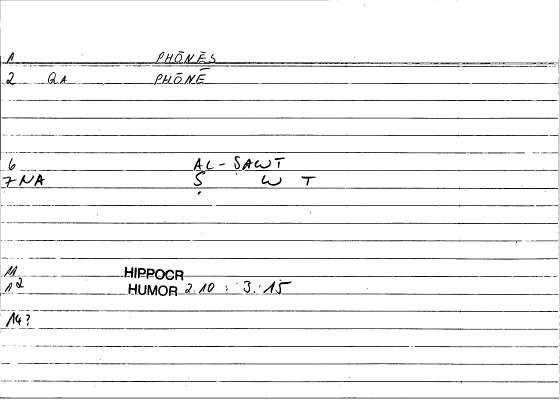 1 PHŌNĒS
2 QA PHŌNĒ
6 AL-SAWT
7 NA Ṣ W T
11 HIPPOCR
12 HUMOR 2.10 : 3.15
14?